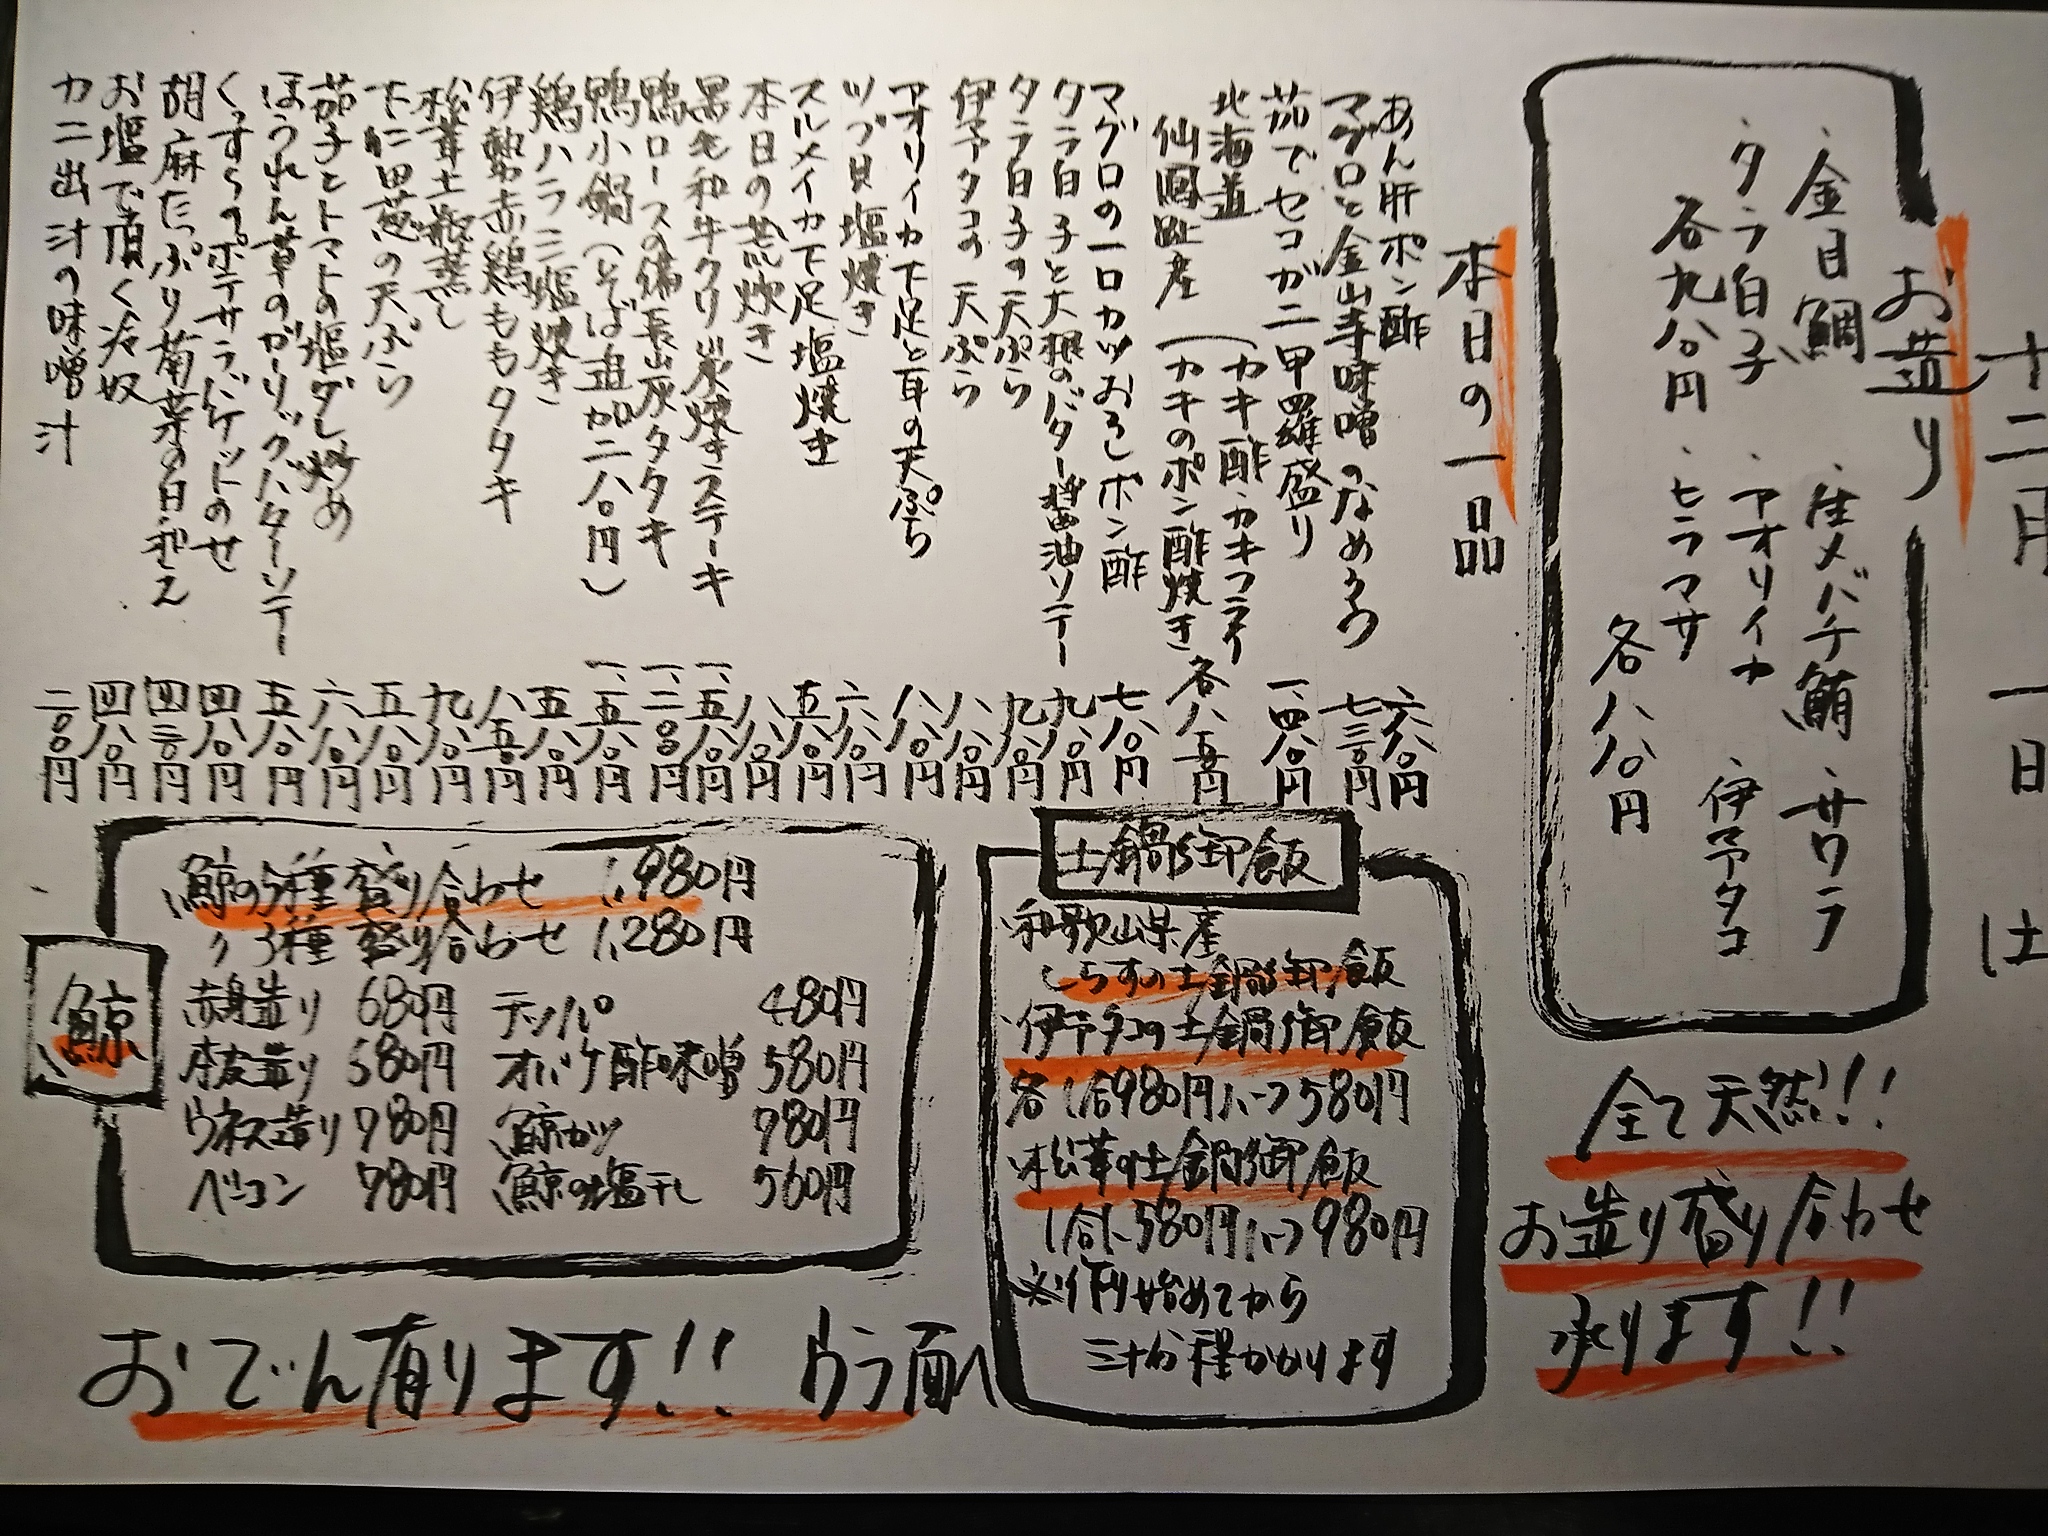 十二月一日 土
お造り
・金目鯛 ・生メバチ鮪 ・サワラ
・タラ白子 ・アオリイカ ・伊予タコ
各九八〇円 ・ヒラマサ
各八八〇円
全て天然!!
お造り盛り合わせ
承ります!!
本日の一品
あん肝ポン酢 六八〇円
マグロと金山寺味噌のなめろう 七三〇円
茹でセコガニ甲羅盛り 一、四八〇円
北海道 (カキ酢・カキフライ
仙鳳趾産 (カキのポン酢焼き 各八五〇円
マグロの一口カツおろしポン酢 七八〇円
タラ白子と大根のバター醤油ソテー 九八〇円
タラ白子の天ぷら 九八〇円
伊予タコの天ぷら 八八〇円
アオリイカ下足と耳の天ぷら 八八〇円
ツブ貝塩焼き 六八〇円
スルメイカ下足塩焼き 五八〇円
本日の荒炊き 八八〇円
黒毛和牛クリ炭焼きステーキ 一、五八〇円
鴨ロースの備長炭タタキ 一、二〇〇円
鴨小鍋(そば追加二八〇円) 一、五八〇円
鶏ハラミ塩焼き 五八〇円
伊勢赤鶏ももタタキ 八五〇円
松茸土瓶蒸し 九八〇円
下仁田葱の天ぷら 五八〇円
茄子とトマトの塩ダレ炒め 六八〇円
ほうれん草のガーリックバターソテー 五八〇円
くずらのポテサラバゲットのせ 四八〇円
胡麻たっぷり菊菜の白和え 四三〇円
お塩で頂く冷奴 四八〇円
カニ出汁の味噌汁 二〇〇円
土鍋御飯
・和歌山県産
しらすの土鍋御飯
・伊予タコの土鍋御飯
各1合980円ハーフ580円
・松茸の土鍋御飯
1合1,580円ハーフ980円
※作り始めてから
三十分程かかります
鯨
・鯨の5種盛り合わせ 1,980円
〃 3種盛り合わせ 1,280円
赤身造り 680円 テッパ 480円
本皮造り 580円 オバケ酢味噌 580円
ウネス造り 780円 鯨カツ 780円
ベーコン 780円 鯨の塩干し 560円
おでん有ります!! ウラ面へ